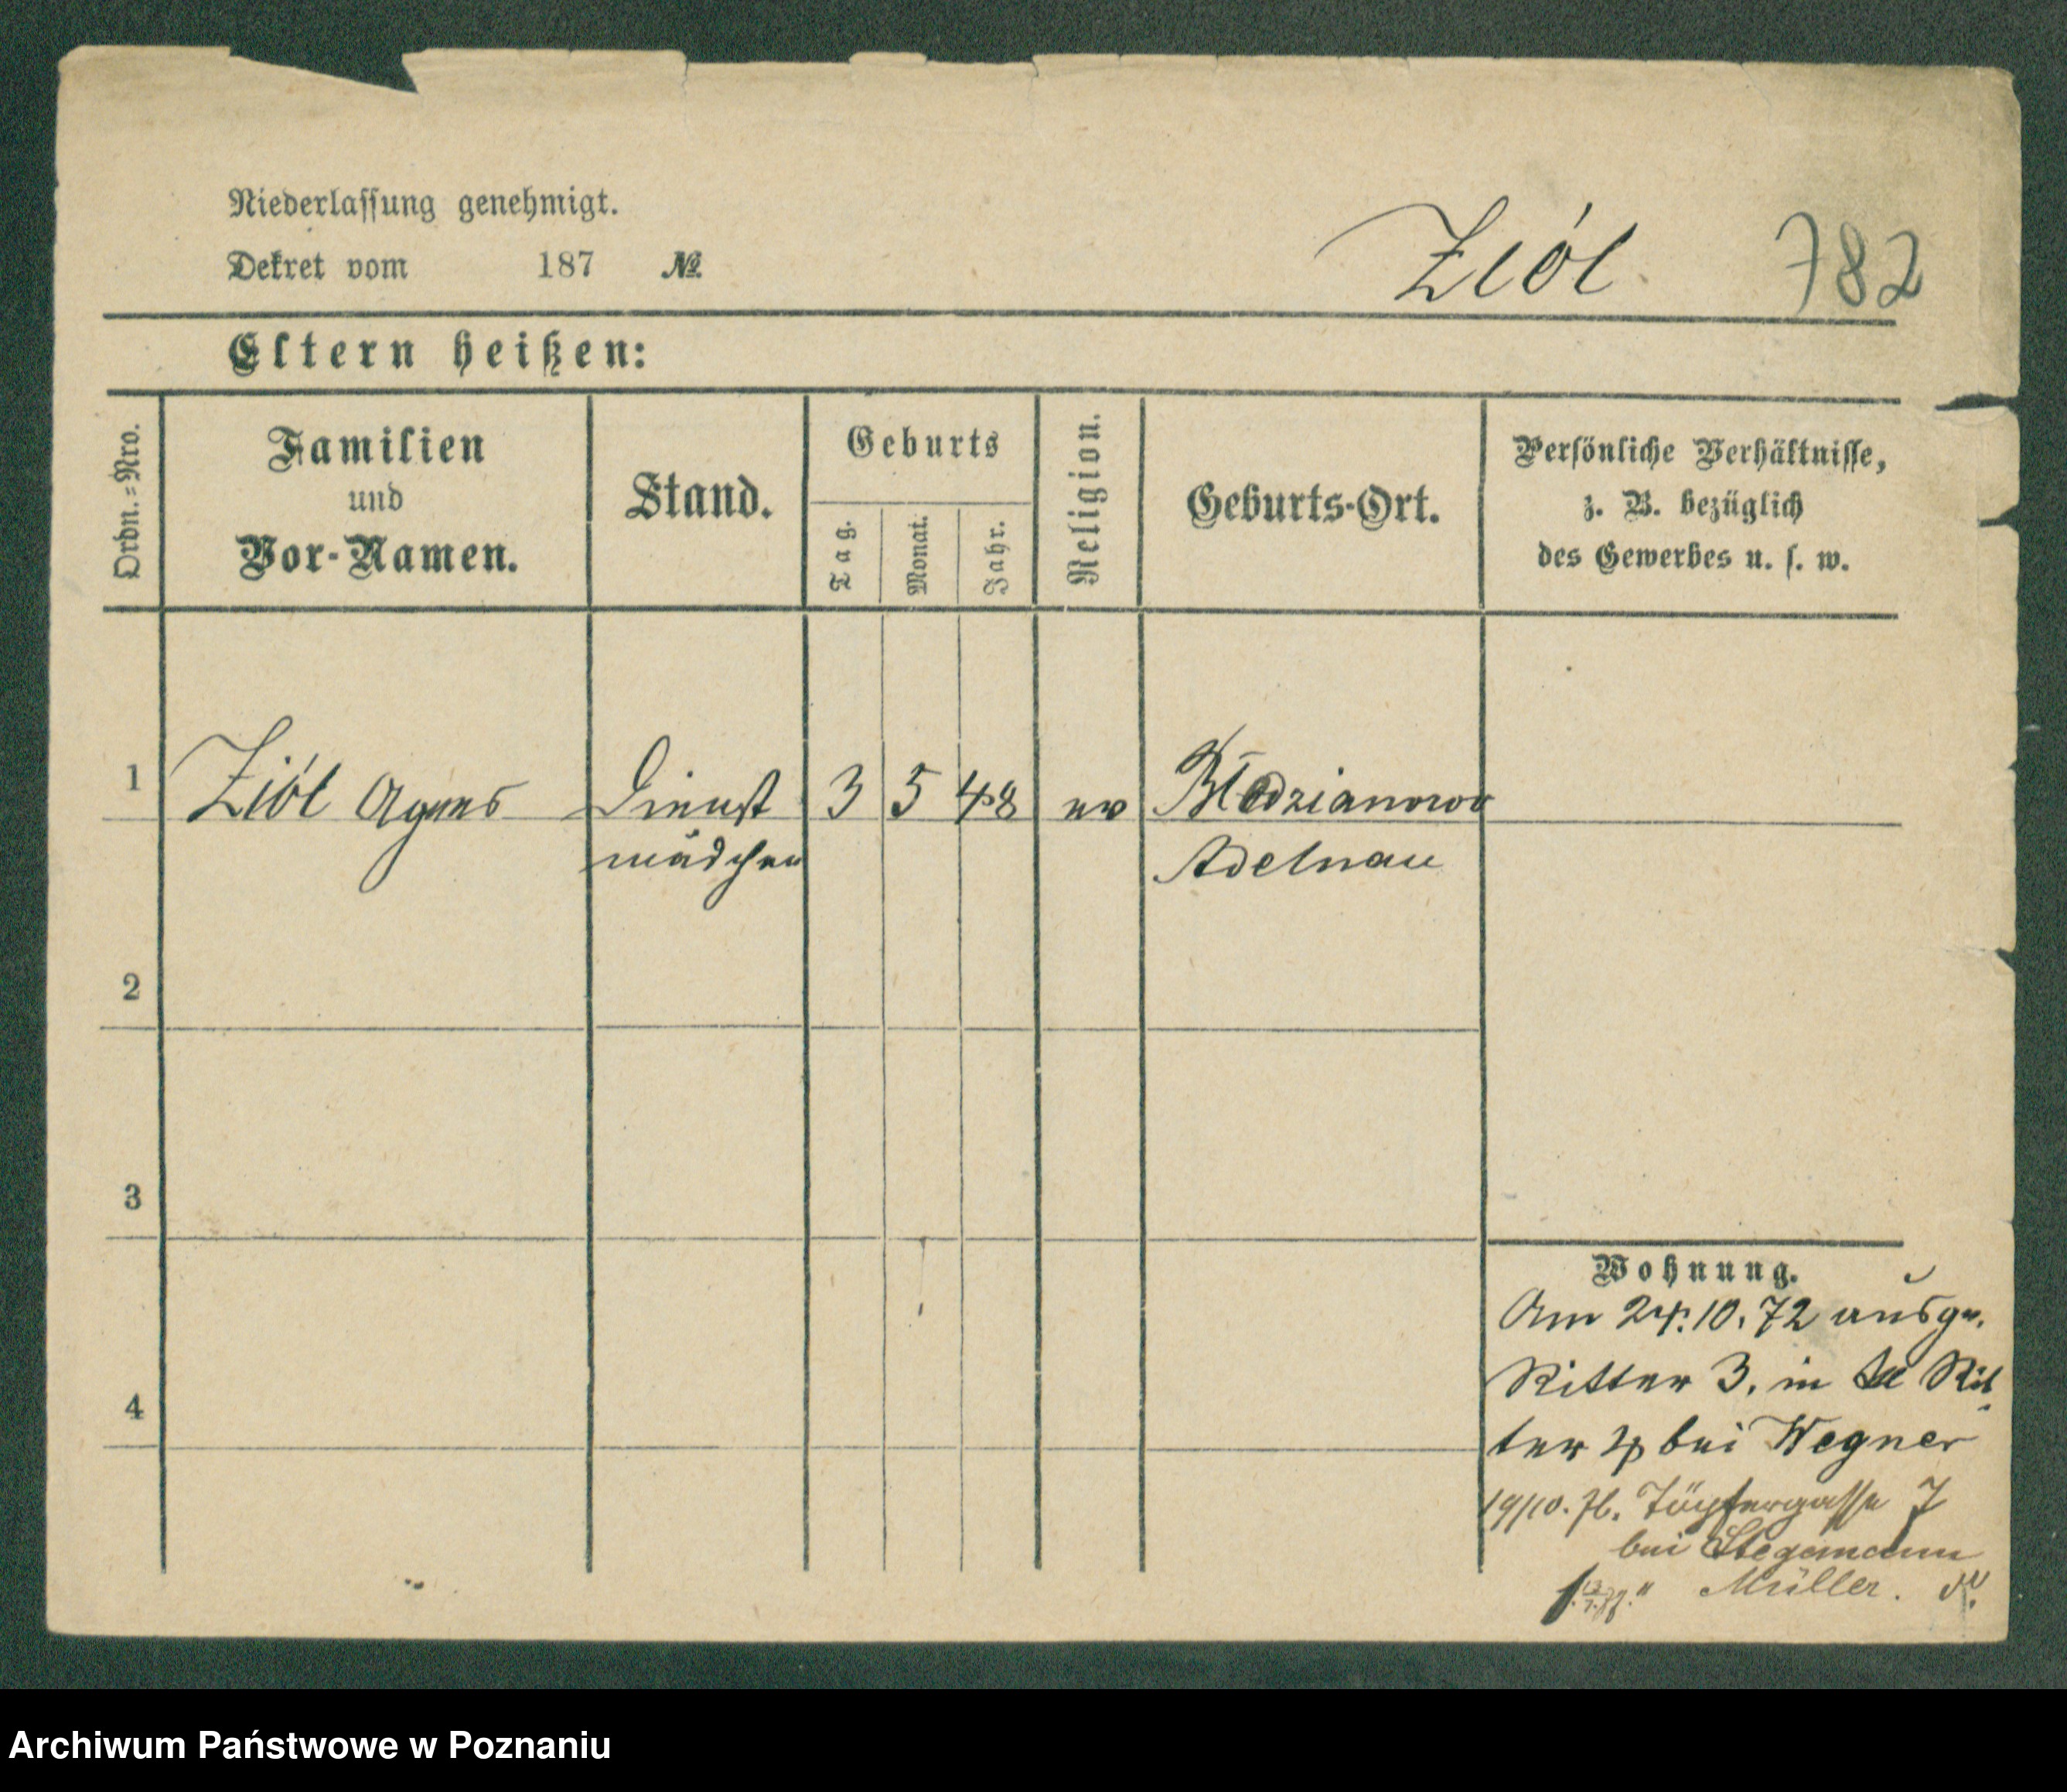 Niederlassung genehmigt.
Dekret vom 187 №
Ziół 782
Eltern heißen:
Ordn.=Nro.
Familien
und
Vor-Namen.
Stand.
Geburts
Tag.
Monat.
Jahr.
Religion.
Geburts-Ort.
Persönliche Verhältnisse,
z. B. bezüglich
des Gewerbes u. s. w.
1 Ziół Agnes Dienst 3 5 48 ev
mädchen Adelnau
2
3
4
Wohnung.
Am 24.10.72 ausge.
Ritter 3. in Rit
ter 4 bei Wegner
19/10. 76. Töpfergasse 7
bei Stegemann
" Müller.
Archiwum Państwowe w Poznaniu